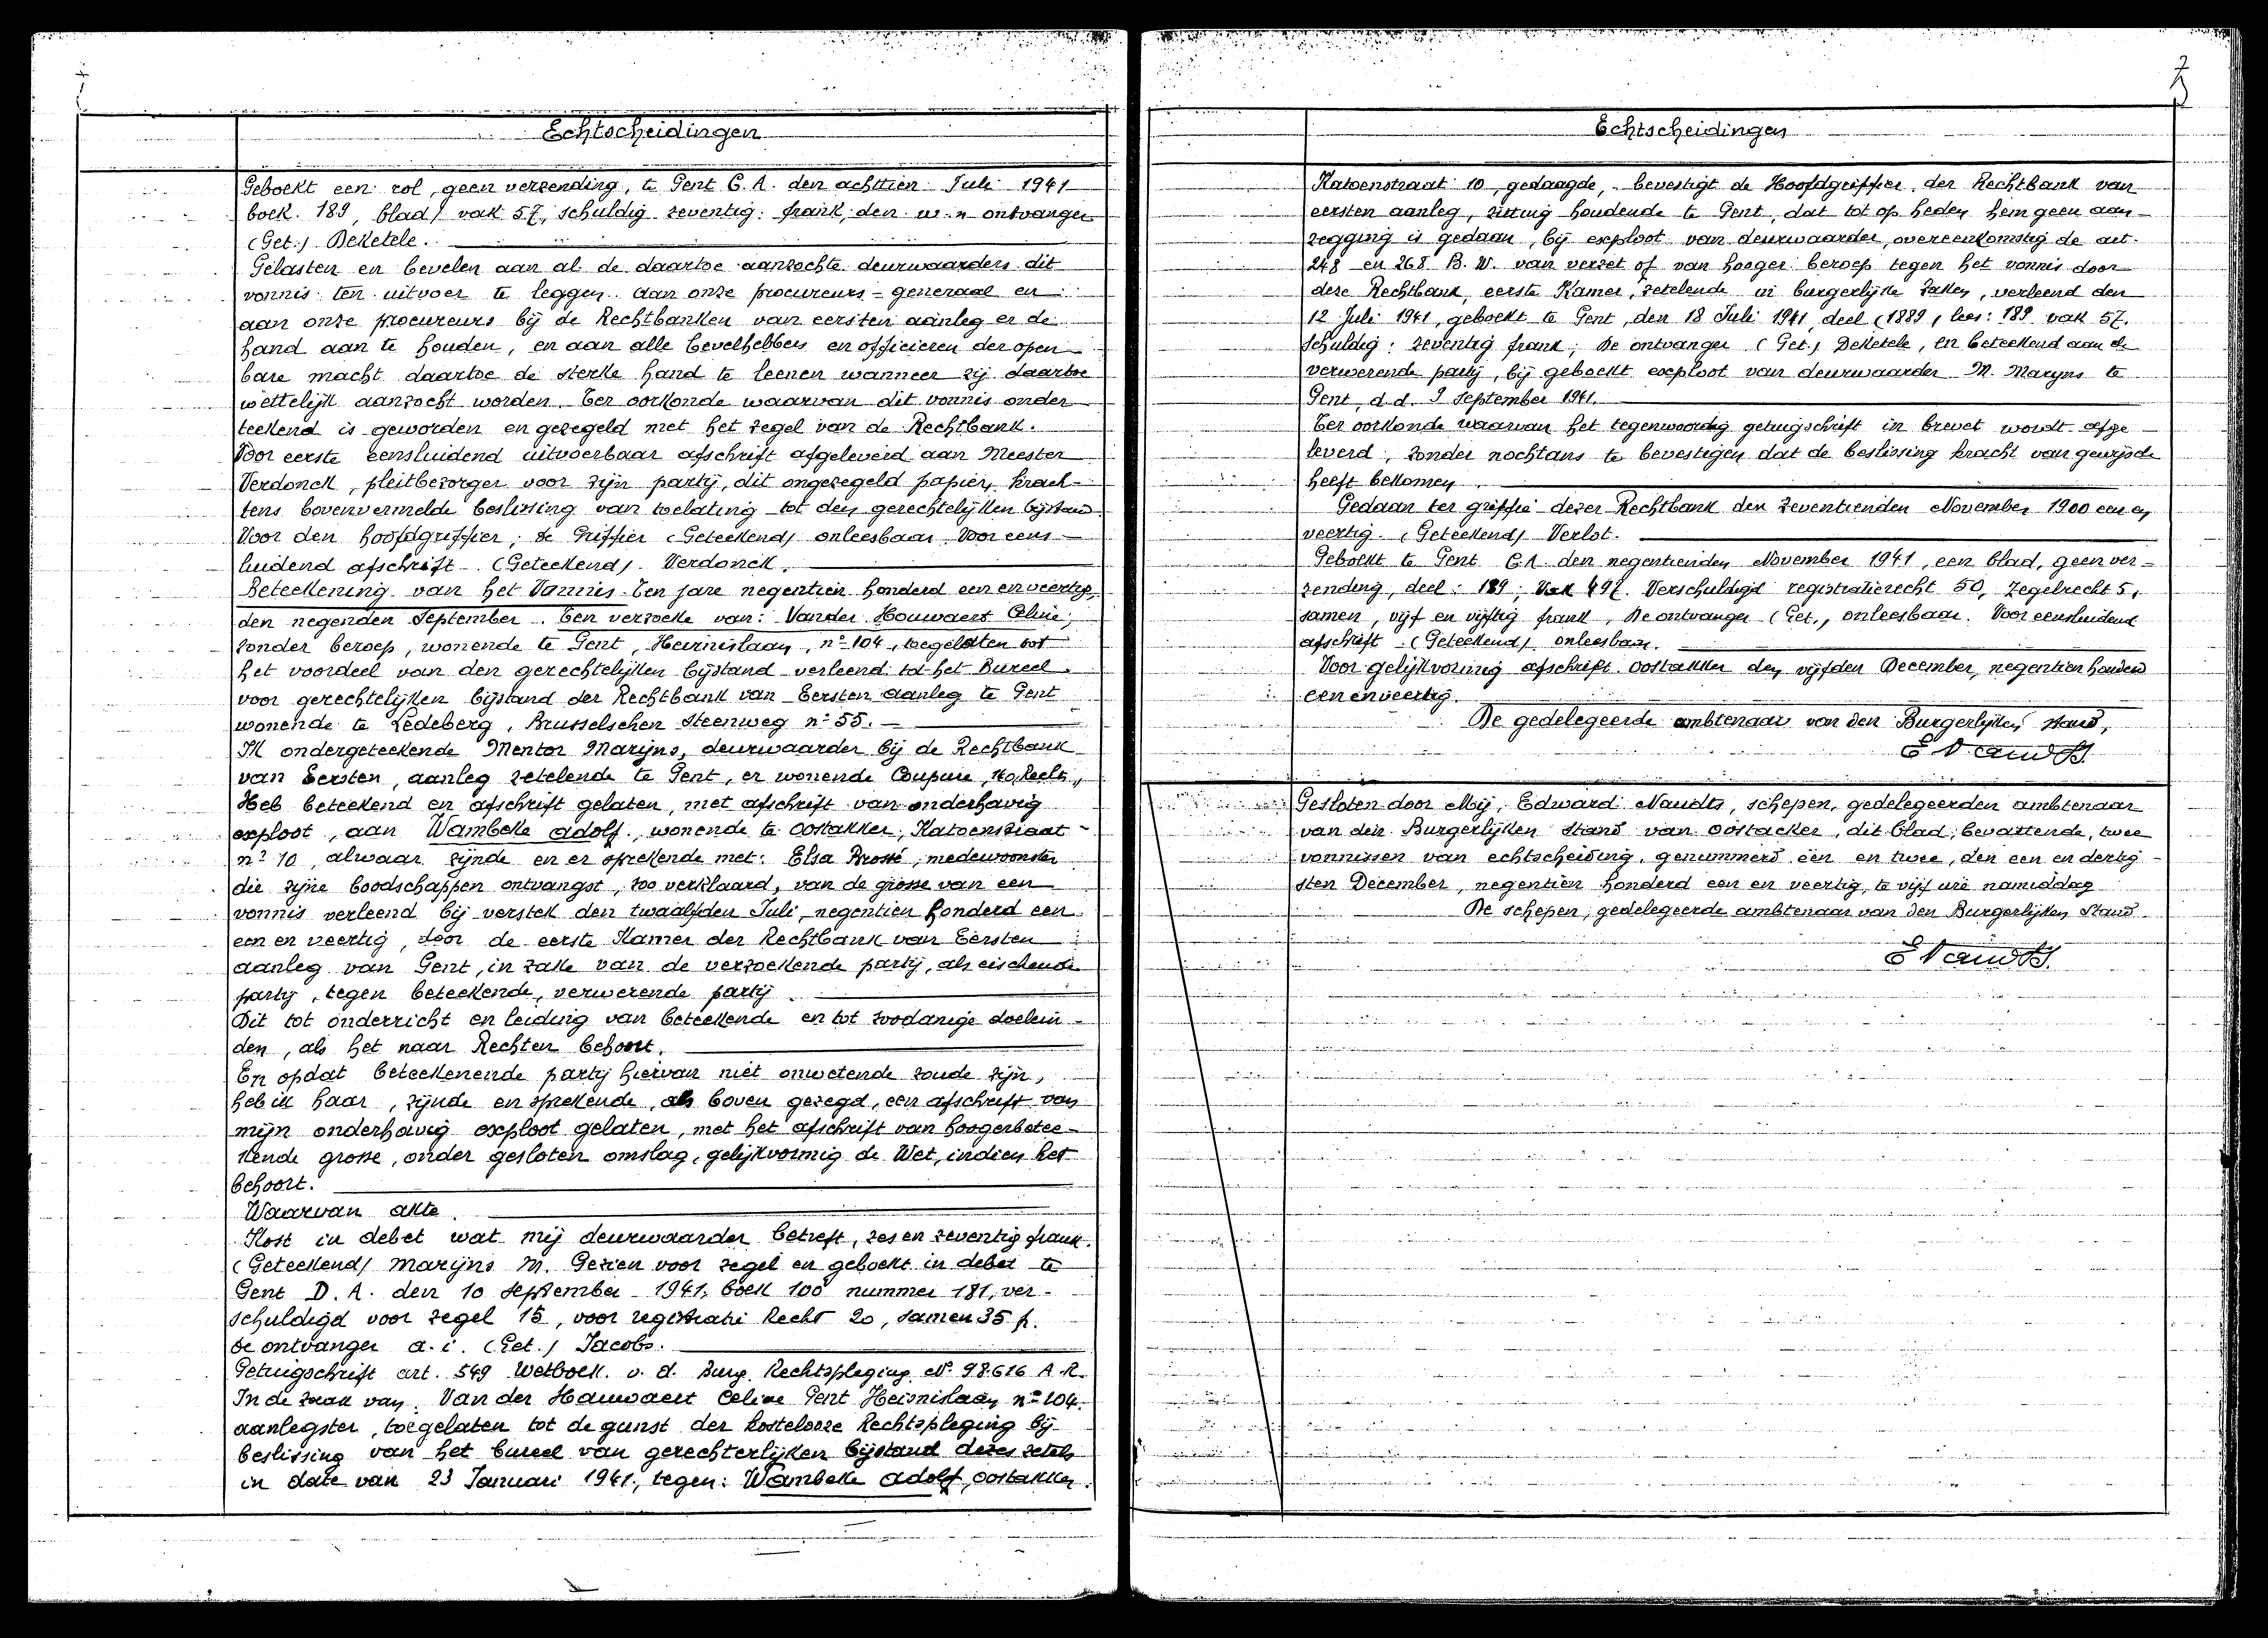 Echtscheidingen
Geboekt een rol, geen verzending, te Gent G. A. den achttien Juli 1941
boek. 189, blad / vak 57, schuldig zeventig frank, den w. n ontvanger
(Get.) DeKetele.
Gelasten en bevelen aan al de daartoe aanzochte deurwaarders dit
vonnis ten uitvoer te leggen. Aan onze procureurs-generaal en
aan onze procureurs bij de Rechtbanken van eersten aanleg er de
hand aan te houden, en aan alle bevelhebbers en officieren der open-
bare macht daartoe de sterke hand te leenen wanneer zij daartoe
wettelijk aanzocht worden. Ter oorkonde waarvan dit vonnis onder
teekend is geworden en gezegeld met het zegel van de Rechtbank.
Voor eerste eensluidend uitvoerbaar afschrift afgeleverd aan Meester
Verdonck, pleitbezorger voor zijn partij, dit ongezegeld papier, krach-
tens bovenvermelde beslissing van toelating tot den gerechtelijken bijstand
Voor den hoofdgriffier; de Griffier (Geteekend) onleesbaar. Voor eens-
luidend afschrift. (Geteekend) Verdonck.
Beteekening van het Vonnis. Ten jare negentien honderd een en veertig,
den negenden September. Ten verzoeke van: Vander Houwaert Celine,
zonder beroep, wonende te Gent, Heirnislaan, n° 104, toegelaten tot
het voordeel van den gerechtelijken bijstand verleend tot het Bureel
voor gerechtelijken bijstand der Rechtbank van Eersten aanleg te Gent
wonende te Ledeberg, Brusselschen Steenweg n° 55.
Ik ondergeteekende Mentor Marijns, deurwaarder bij de Rechtbank
van Eersten, aanleg zetelende te Gent, er wonende Coupure, 160, Rechts,
Heb beteekend en afschrift gelaten, met afschrift van onderhavig
exploot, aan Wambeke Adolf, wonende te Oostakker, Katoenstraat
n° 10, alwaar zijnde en er sprekende met: Elsa Brossé, medewoonster
die zijne boodschappen ontvangst, zoo verklaard, van de grosse van een
vonnis verleend bij verstek den twaalfden Juli, negentien honderd een
een en veertig, door de eerste Kamer der Rechtbank van Eersten
aanleg van Gent, in zake van de verzoekende partij, als eischende
partij, tegen beteekende, verwerende partij.
Dit tot onderricht en leiding van beteekende en tot zoodanige doelein-
den, als het naar Rechten behoort.
En opdat beteekenende partij hiervan niet onwetende zoude zijn,
heb ik haar, zijnde en sprekende, als boven gezegd, een afschrift van
mijn onderhavig exploot gelaten, met het afschrift van hoogerbetee-
kende grosse, onder gesloten omslag, gelijkvormig de Wet, indien het
behoort.
Waarvan akte.
Kost in debet wat mij deurwaarder betreft, zes en zeventig frank.
(Geteekend) Marijns M. Gezien voor zegel en geboekt in debet te
Gent D. A. den 10 September 1941, boek 100 nummer 181, ver-
schuldigd voor zegel 15, voor registratie Recht 20, samen 35 f.
de ontvanger a. i. (Get.) Jacobs.
Getuigschrift art. 549 Wetboek. v. d. Burg. Rechtspleging N° 98.616 A. R.
In de zaak van. Van der Hauwaert Celine Gent Heirnislaan n° 104.
aanlegster, toegelaten tot de gunst der kostelooze Rechtspleging bij
beslissing van het bureel van gerechterlijken bijstand dezes zetels
in date van 23 Januari 1941, tegen: Wambeke Adolf, Oostakker.
Echtscheidingen
Katoenstraat 10, gedaagde, bevestigt de Hoofdgriffier der Rechtbank van
eersten aanleg, zitting houdende te Gent, dat tot op heden hem geen aan-
zegging is gedaan, bij exploot van deurwaarder, overeenkomstig de art.
248 en 268 B. W. van verzet of van hooger beroep tegen het vonnis door
deze Rechtbank, eerste Kamer, zetelende in burgerlijke zaken, verleend den
12 Juli 1941, geboekt te Gent, den 18 Juli 1941, deel (1889, lees: 189 vak 57.
schuldig: zeventig frank; De ontvanger (Get.) DeKetele, en beteekend aan de
verwerende partij, bij geboekt exploot van deurwaarder M. Maryns te
Gent, d.d. 9 September 1941.
Ter oorkonde waarvan het tegenwoordig getuigschrift in brevet wordt afge-
leverd, zonder nochtans te bevestigen dat de beslissing kracht van gewijsde
heeft bekomen.
Gedaan ter griffie dezer Rechtbank den zeventienden November 1900 een en
veertig. (Geteekend) Verlot.
Geboekt te Gent G.A. den negentienden November 1941, een blad, geen ver-
zending, deel: 189; Vak 497. Verschuldigd registratierecht 50, Zegelrecht 5,
samen, vijf en vijftig frank, De ontvanger (Get., onleesbaar. Voor eensluidend
afschrift. (Geteekend) onleesbaar.
Voor gelijkvormig afschrift. Oostakker den vijfden December, negentien honderd
een en veertig.
De gedelegeerde ambtenaar van den Burgerlijken stand,
E Naudts.
Gesloten door Mij, Edward Naudts, schepen, gedelegeerden ambtenaar
van den Burgerlijken Stand van Oostacker, dit blad, bevattende, twee
vonnissen van echtscheiding, genummerd een en twee, den een en dertig-
sten December, negentien honderd een en veertig, te vijf ure namiddag
De schepen, gedelegeerde ambtenaar van den Burgerlijken Stand
E Naudts.